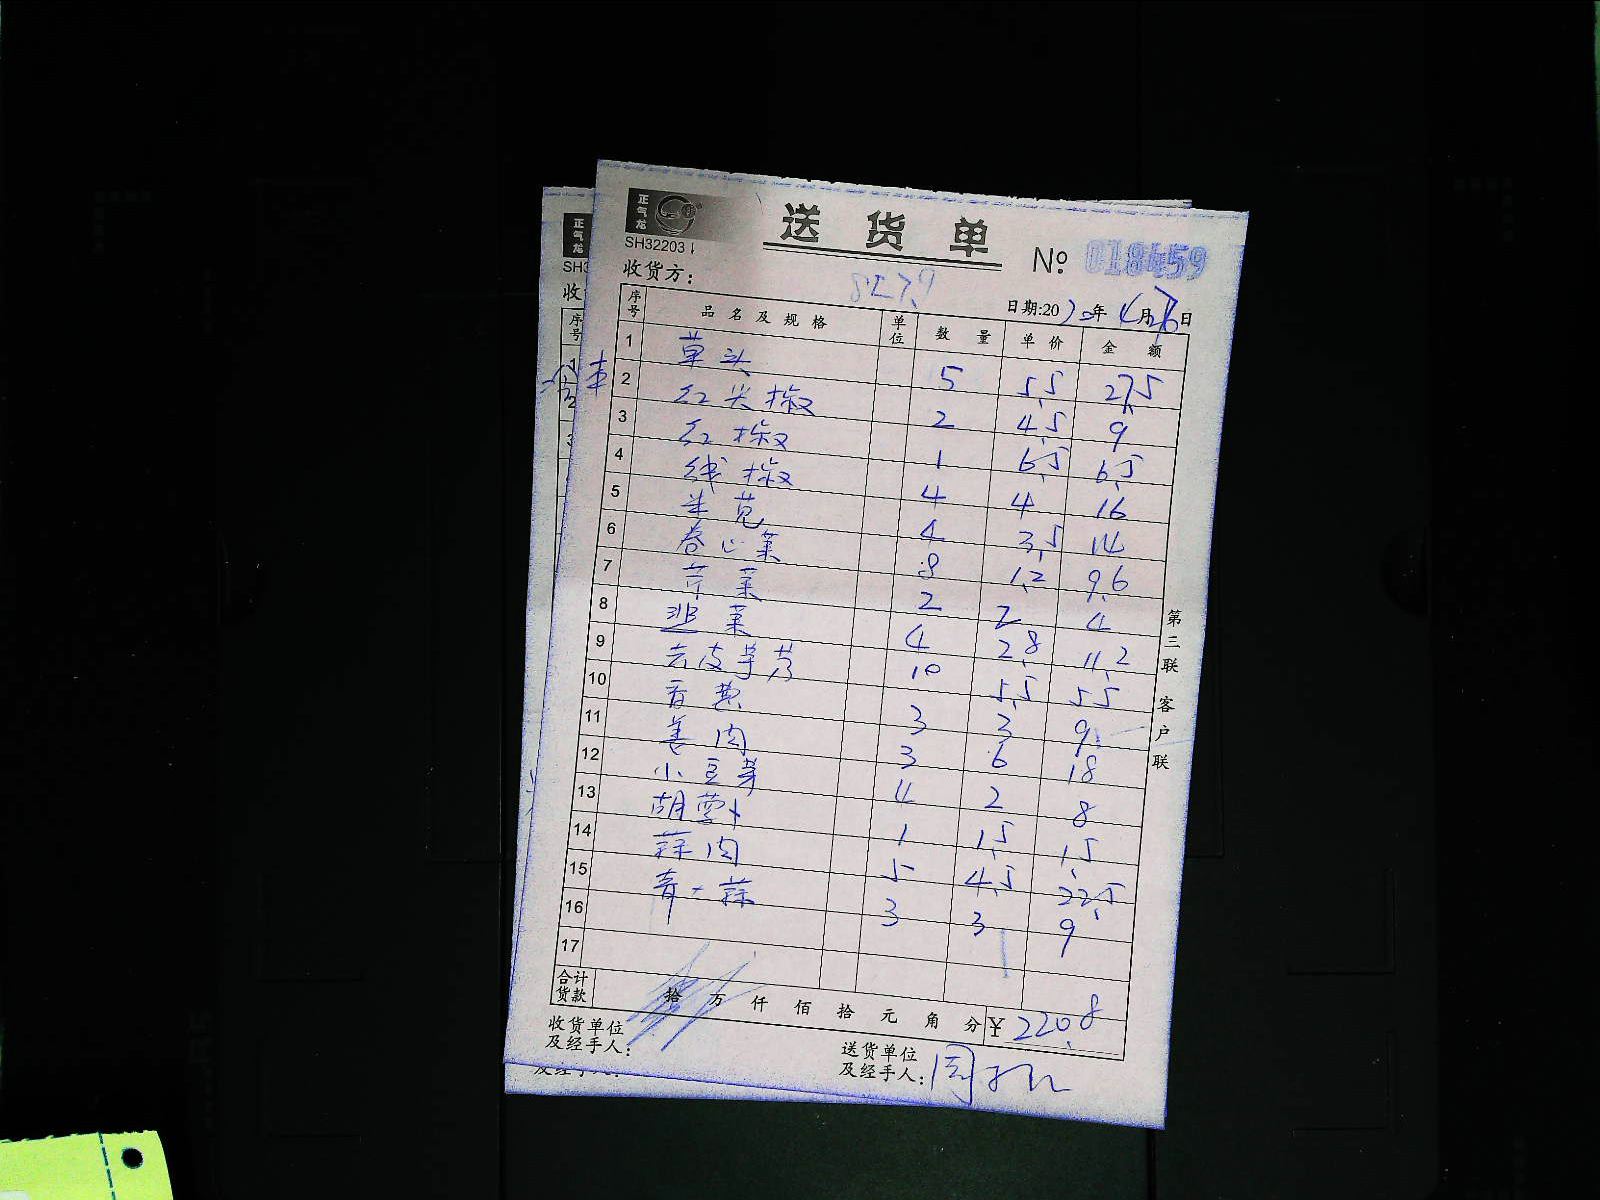 正气龙
送货单
SH32203
No 018459
收货方:
827.9
日期:2020年4月26日
序号 品名及规格 单位 数量 单价 金额
1 草头 5 5.5 27.5
2 红尖椒 2 4.5 9
3 红椒 1 6.5 6.5
4 线椒 4 4 16
5 米苋 4 3.5 14
6 卷心菜 8 1.2 9.6
7 芹菜 2 2 4
8 韭菜 4 2.8 11.2
9 去皮芋艿 10 5.5 55
10 香葱 3 3 9
11 姜肉 3 6 18
12 小豆芽 4 2 8
13 胡萝卜 1 1.5 1.5
14 蒜肉 5 4.5 22.5
15 青大蒜 3 3 9
16
17
合计货款 拾 万 仟 佰 拾 元 角 分 ¥ 220.8
收货单位及经手人:
送货单位及经手人:
第二联 客户联
正气龙
SH3
收
序号
1
2
3